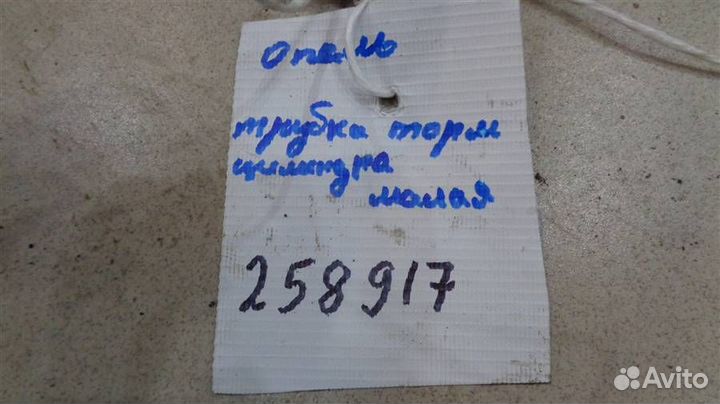 Опель
трубка торм
цилиндра
малая
258917
Avito